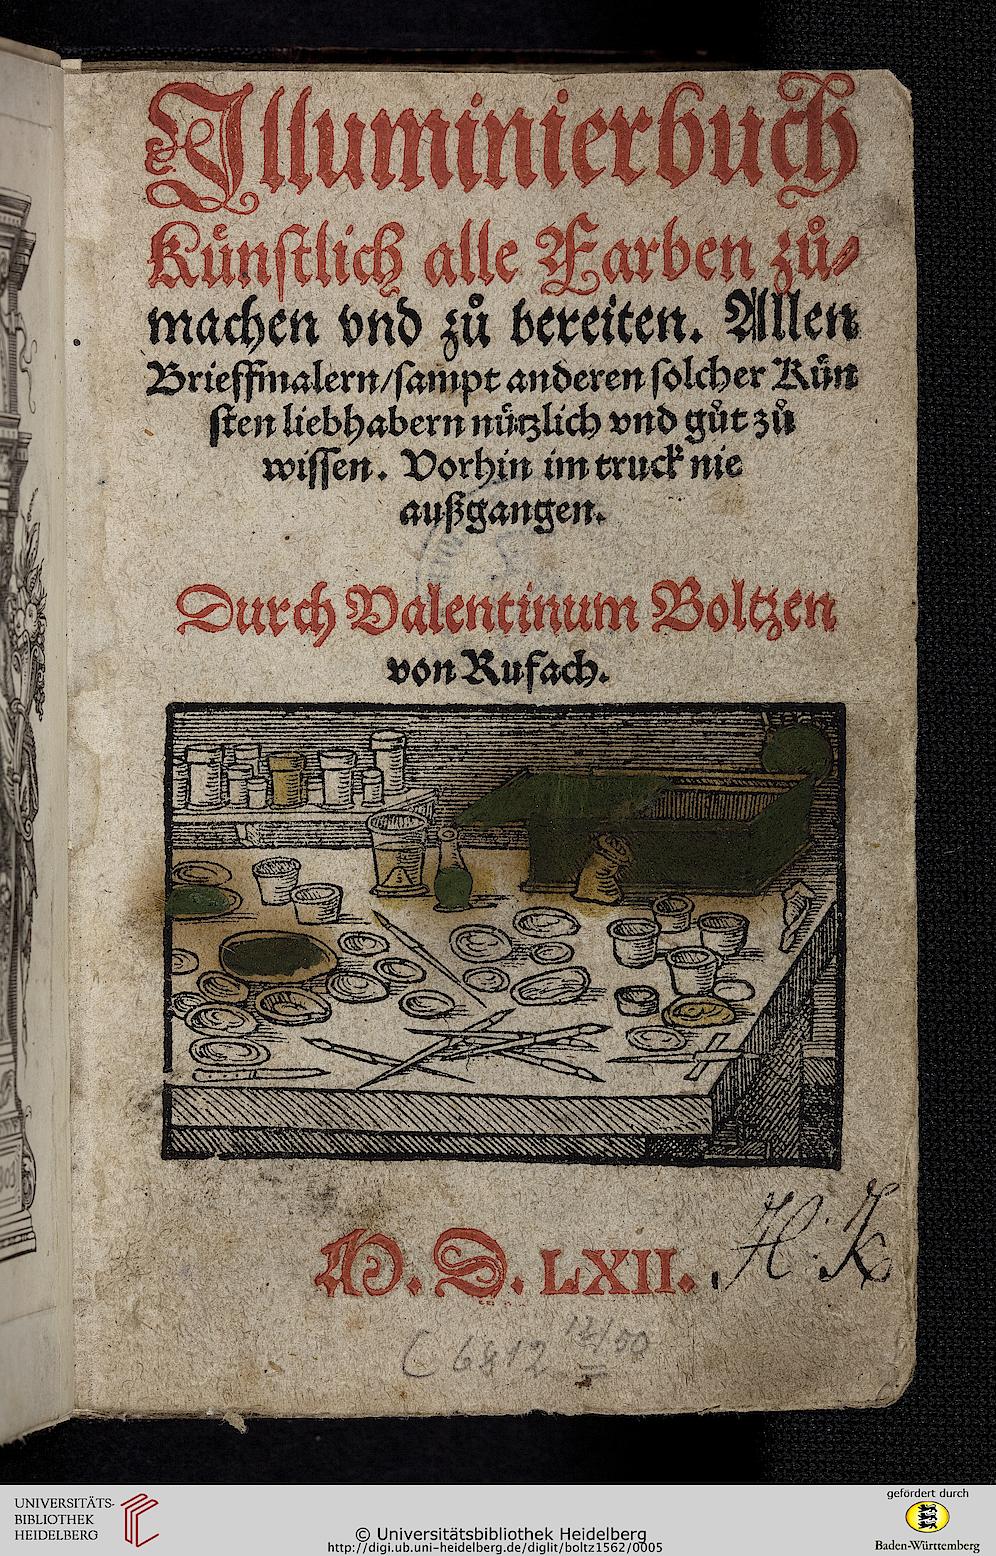 Illuminierbuch
Kuͤnſtlich alle Farben zuͦ⸗
machen vnd zuͦ bereiten. Allen
Brieffmalern/ſampt anderen ſolcher Kuͤn
ſten liebhabern nuͤtzlich vnd guͦt zuͦ
wiſſen. Vorhin im truck nie
außgangen.
Durch Valentinum Boltzen
von Rufach.
M. D. LXII.
H. K
C 6812 12/00
UNIVERSITÄTS-
BIBLIOTHEK
HEIDELBERG
© Universitätsbibliothek Heidelberg
http://digi.ub.uni-heidelberg.de/diglit/boltz1562/0005
gefördert durch
Baden-Württemberg